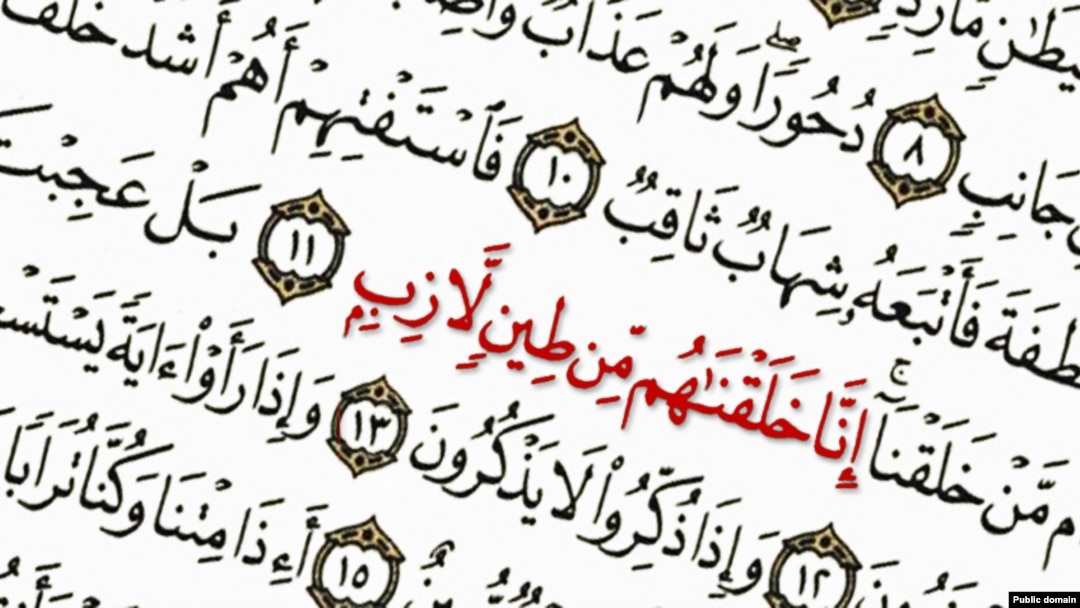 مَّارِدٍ
جَانِبٍ ٨ دُحُورًاۖ وَلَهُمْ عَذَابٌ
فَأَتْبَعَهُۥ شِهَابٌ ثَاقِبٌ ١٠ فَٱسْتَفْتِهِمْ أَهُمْ أَشَدُّ
مَّنْ خَلَقْنَآۚ إِنَّا خَلَقْنَٰهُم مِّن طِينٍ لَّازِبٍۭ ١١ بَلْ عَجِبْتَ
١٢ وَإِذَا ذُكِّرُوا۟ لَا يَذْكُرُونَ ١٣ وَإِذَا رَأَوْا۟ ءَايَةً
١٥ أَءِذَا مِتْنَا وَكُنَّا تُرَابًا
Public domain